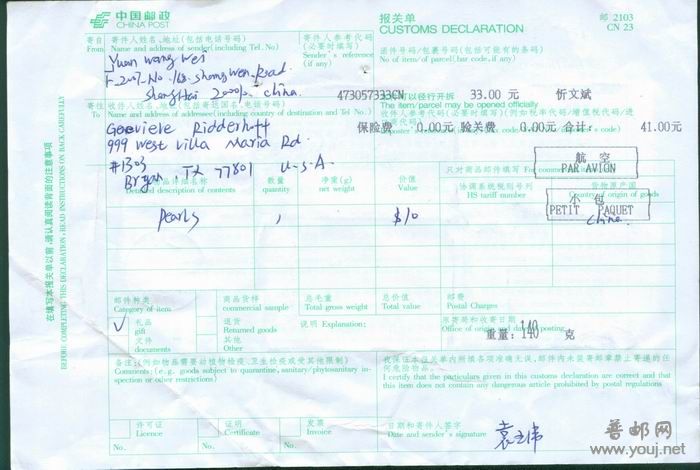 中国邮政
CHINA POST
报关单
CUSTOMS DECLARATION
邮 2103
CN 23
寄自
From
寄件人姓名、地址(包括电话号码)
Name and address of sender(including Tel. No.)
寄件人参考代码
(必要时填写)
Sender's reference
(if any)
函件号码/包裹号码(包括可能有的条码)
No. of item/of parcel(bar code, if any)
Yuan wang wei
shangHai China
473057333CN
可以径行开拆
The item/parcel may be opened officially
33.00 元
忻文斌
寄往
To
收件人姓名、地址(包括寄达国名、电话号码)
Name and address of addressee(including country of destination and Tel No.)
保险费 0.00元 验关费 0.00元 合计: 41.00元
Ridderhoff
999 West Villa Maria Rd.
#1303
Bryan, TX 77801 U-S-A
航 空
PAR AVION
只对商品邮件填写
内件详细名称
Detailed description of contents
数量
quantity
净重(g)
net weight
价值
Value
协调系统税则号列
HS tariff number
货物原产国
Country of origin of goods
小 包
PETIT PAQUET
Pearls
$10
China
邮件种类
Category of item
商品货样
commercial sample
总毛重
Total gross weight
总价值
Total value
邮费
Postal Charges
✓
礼品
gift
退货
Renamed goods
说明 Explanation:
原寄局和收寄日期
Office of origin and date of posting
文件
documents
其他
Other
重量: 140 克
备注(例如物品需要动植物检疫、卫生检疫或受其他限制)
Comments: (e.g. goods subject to quarantine, sanitary/phytosanitary inspection or other restrictions)
我保证本报关单内所填各项准确无误,邮件内未装寄邮章禁止寄递的任何危险物品。
I certify that the particulars given in this customs declaration are correct and that
this item does not contain any dangerous article prohibited by postal regulations
许可证
Licence
No.
证明
Certificate
No.
发票
Invoice
No.
日期和寄件人签字
Date and sender's signature
在填写本报关单以前,请认真阅读背面的注意事项
BEFORE COMPLETING THIS DECLARATION, READ INSTRUCTIONS ON BACK CAREFULLY
普邮网
www.youj.net